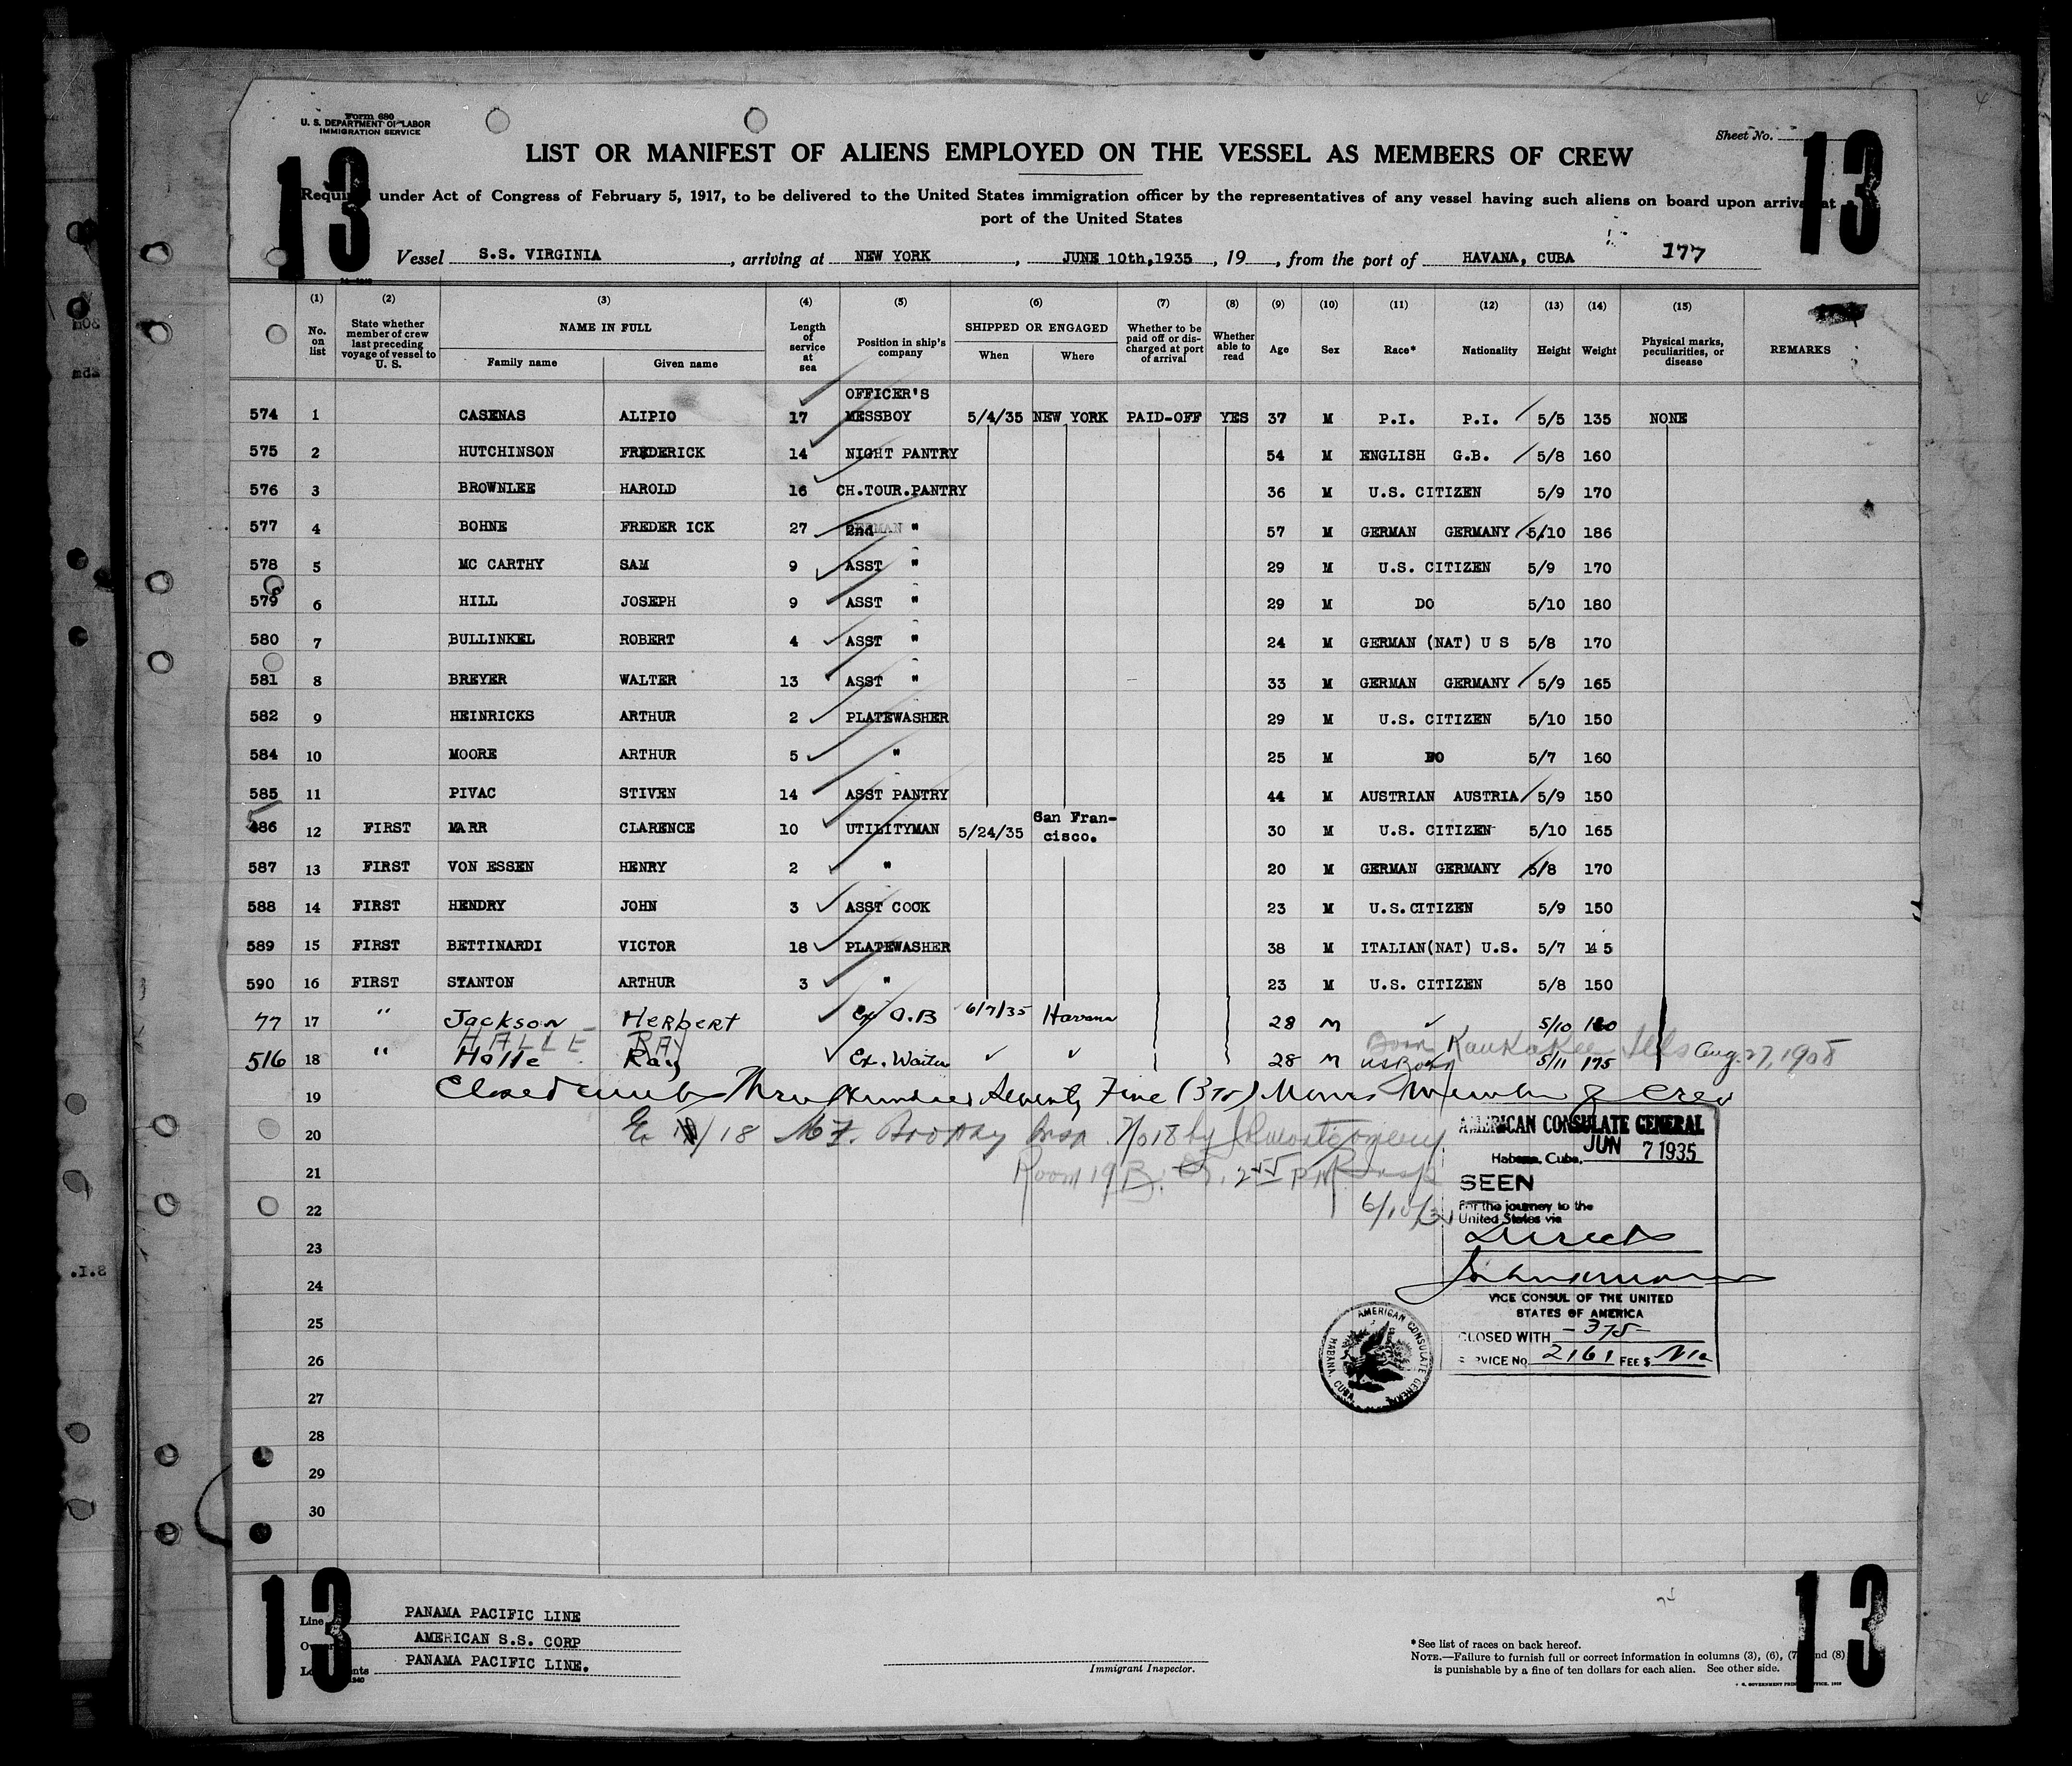 Form 680
U. S. DEPARTMENT OF LABOR
IMMIGRATION SERVICE
Sheet No.
13 13
LIST OR MANIFEST OF ALIENS EMPLOYED ON THE VESSEL AS MEMBERS OF CREW
Required under Act of Congress of February 5, 1917, to be delivered to the United States immigration officer by the representatives of any vessel having such aliens on board upon arrival at
port of the United States
Vessel S.S. VIRGINIA, arriving at NEW YORK, JUNE 10th,1935, 19, from the port of HAVANA, CUBA 177
(1) (2) (3) (4) (5) (6) (7) (8) (9) (10) (11) (12) (13) (14) (15)
No. on list State whether member of crew last preceding voyage of vessel to U. S. NAME IN FULL Family name Given name Length of service at sea Position in ship's company SHIPPED OR ENGAGED When Where Whether to be paid off or discharged at port of arrival Whether able to read Age Sex Race* Nationality Height Weight Physical marks, peculiarities, or disease REMARKS
574 1 CASENAS ALIPIO 17 OFFICER'S MESSBOY 5/4/35 NEW YORK PAID-OFF YES 37 M P.I. P.I. 5/5 135 NONE
575 2 HUTCHINSON FREDERICK 14 NIGHT PANTRY 54 M ENGLISH G.B. 5/8 160
576 3 BROWNLEE HAROLD 16 CH.TOUR.PANTRY 36 M U.S. CITIZEN 5/9 170
577 4 BOHNE FREDER ICK 27 2nd " 57 M GERMAN GERMANY 5/10 186
578 5 MC CARTHY SAM 9 ASST " 29 M U.S. CITIZEN 5/9 170
579 6 HILL JOSEPH 9 ASST " 29 M DO 5/10 180
580 7 BULLINKEL ROBERT 4 ASST " 24 M GERMAN (NAT) U S 5/8 170
581 8 BREYER WALTER 13 ASST " 33 M GERMAN GERMANY 5/9 165
582 9 HEINRICKS ARTHUR 2 PLATEWASHER 29 M U.S. CITIZEN 5/10 150
584 10 MOORE ARTHUR 5 " 25 M DO 5/7 160
585 11 PIVAC STIVEN 14 ASST PANTRY 44 M AUSTRIAN AUSTRIA 5/9 150
586 12 FIRST MARR CLARENCE 10 UTILITYMAN 5/24/35 San Francisco. 30 M U.S. CITIZEN 5/10 165
587 13 FIRST VON ESSEN HENRY 2 " 20 M GERMAN GERMANY 5/8 170
588 14 FIRST HENDRY JOHN 3 ASST COOK 23 M U.S.CITIZEN 5/9 150
589 15 FIRST BETTINARDI VICTOR 18 PLATEWASHER 38 M ITALIAN(NAT) U.S. 5/7 145
590 16 FIRST STANTON ARTHUR 3 " 23 M U.S. CITIZEN 5/8 150
77 17 " Jackson Herbert Ex A.B 6/7/35 Havana 28 M 5/10 180
HALLE RAY Born Kankakee Ills Aug. 27, 1908
516 18 " Halle Ray Ex. Waiter 28 M US Born 5/11 175
19 Closed with Three Hundred Seventy Five (375) Names Member of Crew
20
21
22
23
24
25
26
27
28
29
30
AMERICAN CONSULATE GENERAL
Habana, Cuba, JUN 7 1935
SEEN
For the journey to the
United States via
Direct
VICE CONSUL OF THE UNITED
STATES OF AMERICA
CLOSED WITH -375-
SERVICE No. 2161 FEE $ No
AMERICAN CONSULATE GENERAL HABANA, CUBA
13 13
Line PANAMA PACIFIC LINE
Owner AMERICAN S.S. CORP
Local agents PANAMA PACIFIC LINE.
Immigrant Inspector.
*See list of races on back hereof.
NOTE.—Failure to furnish full or correct information in columns (3), (6), (7) and (8)
is punishable by a fine of ten dollars for each alien. See other side.